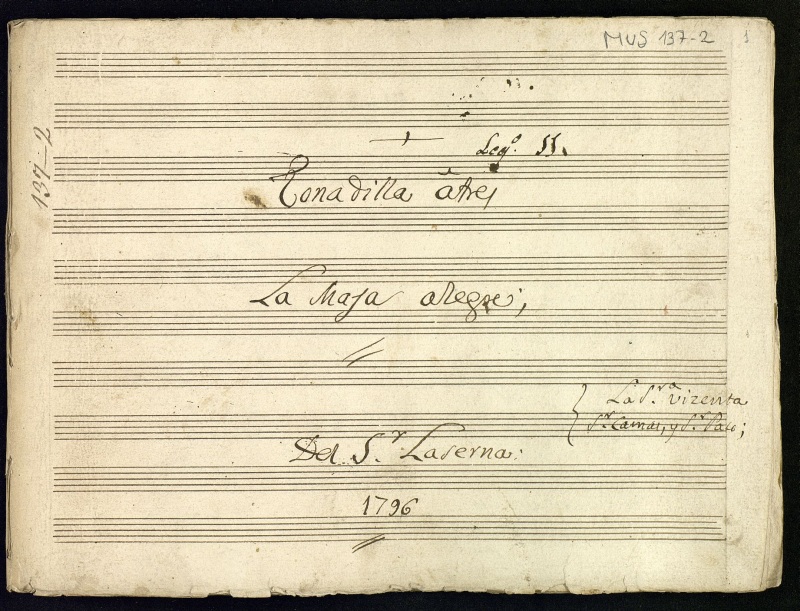 MUS 137-2
1
137-2
Leg.º 11.
Tonadilla â tres
La Maja alegre;
La S.ra Vizenta
S.r Camas, y S.r Paco;
Del S.r Laserna:
1796